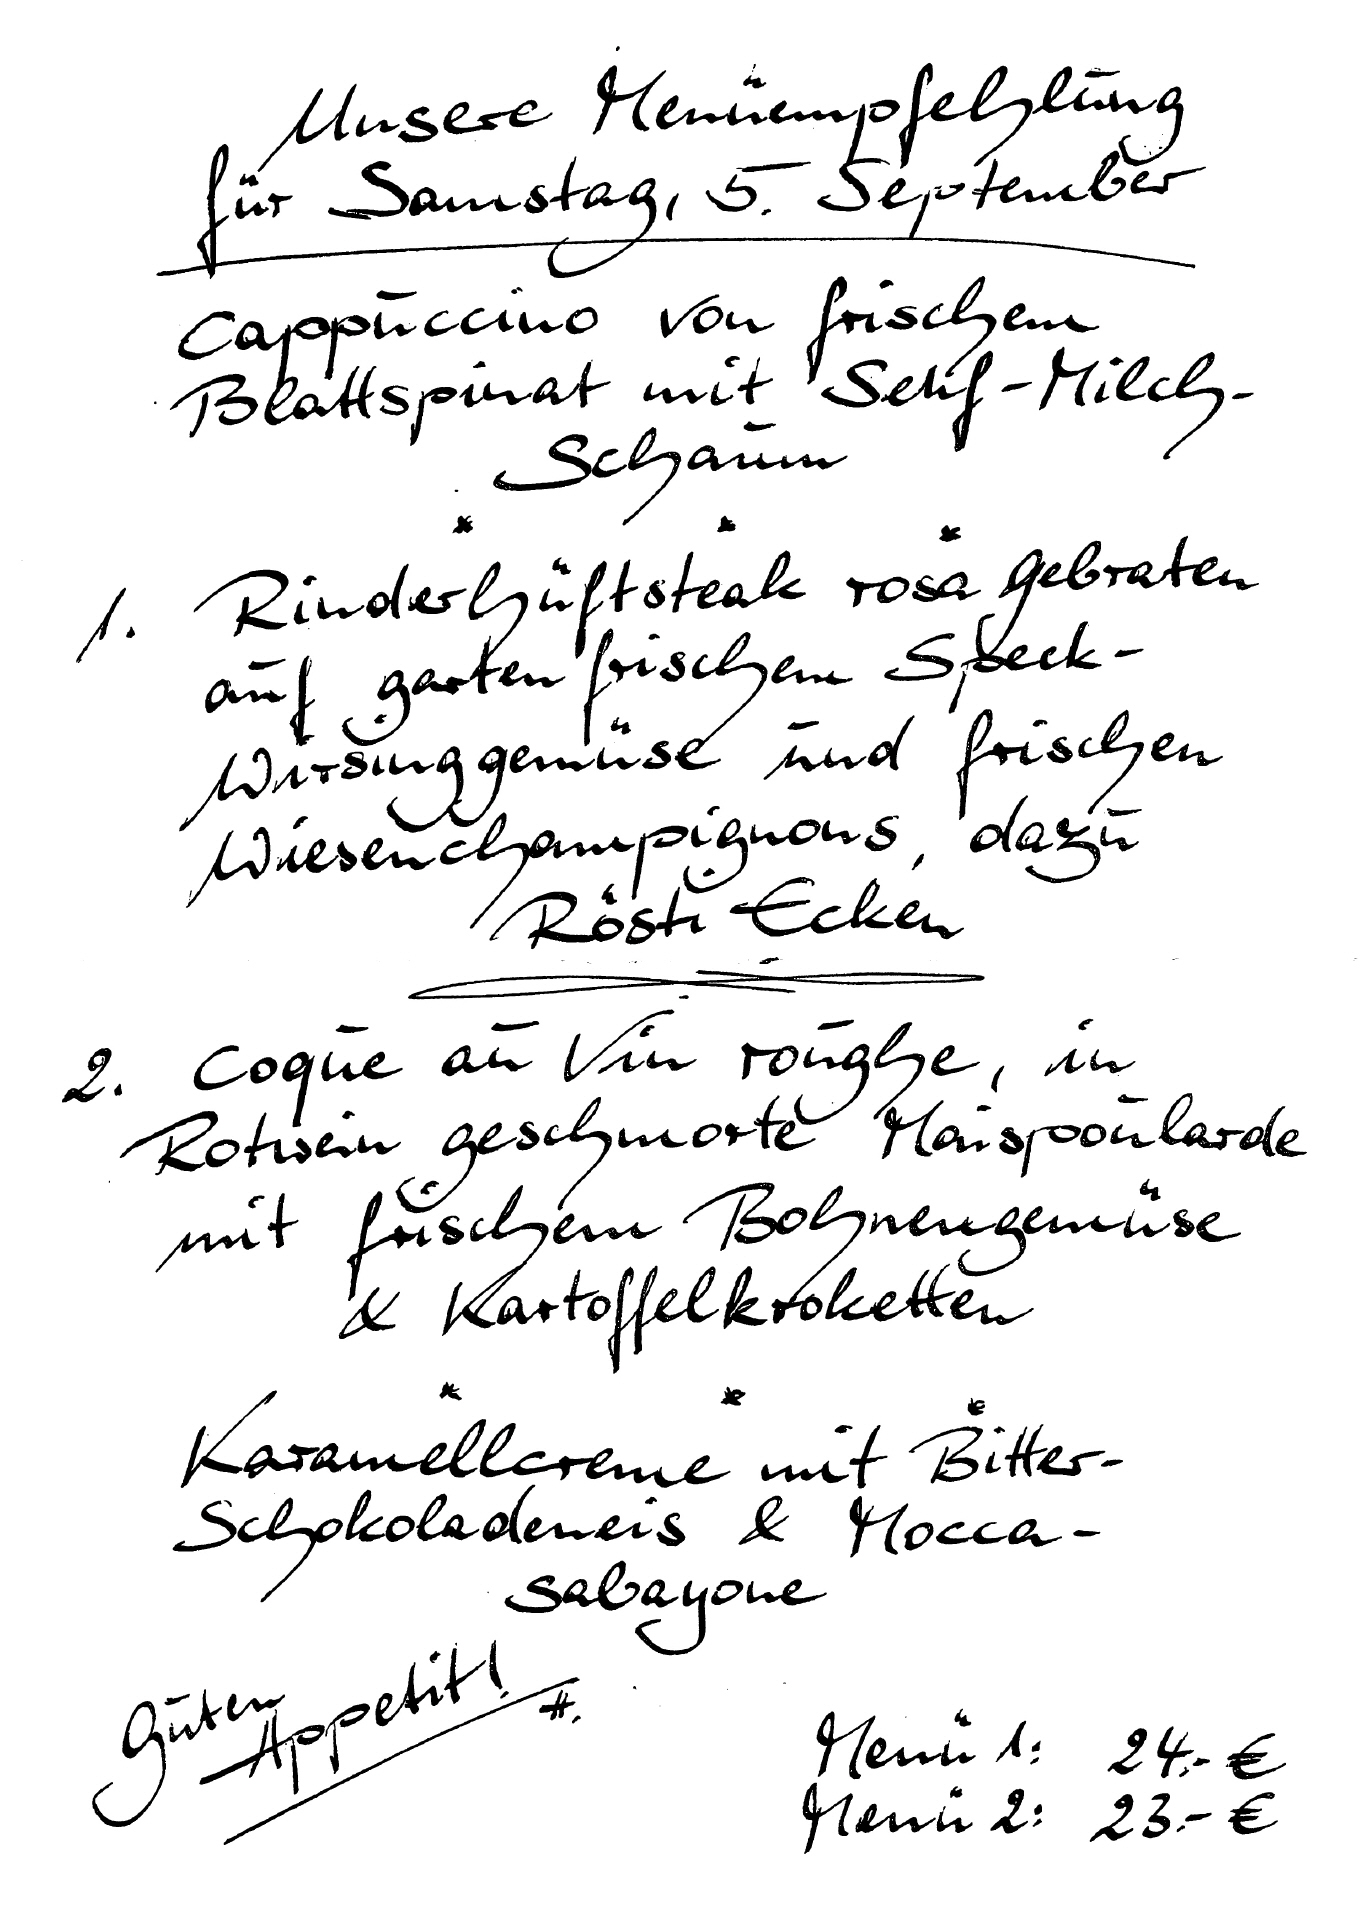 Unsere Menüempfehlung
für Samstag, 5. September
Cappuccino von frischem
Blattspinat mit Senf-Milch-
Schaum
* * *
1. Rinderhüftsteak rosa gebraten
auf gartenfrischem Speck-
Wirsinggemüse und frischen
Wiesenchampignons, dazu
Rösti Ecken
2. Coque au Vin roughe, in
Rotwein geschmorte Maispoularde
mit frischem Bohnengemüse
& Kartoffelkroketten
* * *
Karamellcreme mit Bitter-
Schokoladeneis & Mocca-
sabayone
Guten
Appetit!
H.
Menü 1: 24.- €
Menü 2: 23.- €